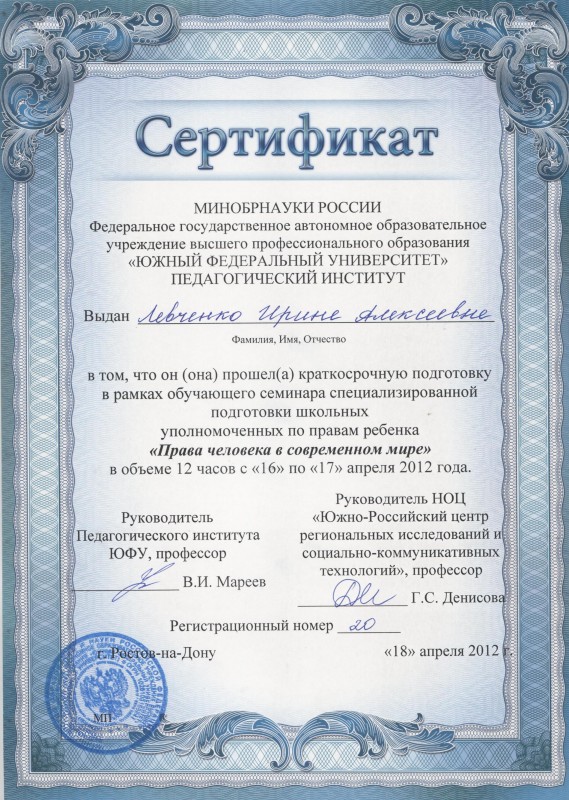 Сертификат
МИНОБРНАУКИ РОССИИ
Федеральное государственное автономное образовательное
учреждение высшего профессионального образования
«ЮЖНЫЙ ФЕДЕРАЛЬНЫЙ УНИВЕРСИТЕТ»
ПЕДАГОГИЧЕСКИЙ ИНСТИТУТ
Выдан Левченко Ирине Алексеевне
Фамилия, Имя, Отчество
в том, что он (она) прошел(а) краткосрочную подготовку
в рамках обучающего семинара специализированной
подготовки школьных
уполномоченных по правам ребенка
«Права человека в современном мире»
в объеме 12 часов с «16» по «17» апреля 2012 года.
Руководитель
Педагогического института
ЮФУ, профессор
В.И. Мареев
Руководитель НОЦ
«Южно-Российский центр
региональных исследований и
социально-коммуникативных
технологий», профессор
Г.С. Денисова
Регистрационный номер 20
г. Ростов-на-Дону «18» апреля 2012 г.
МП